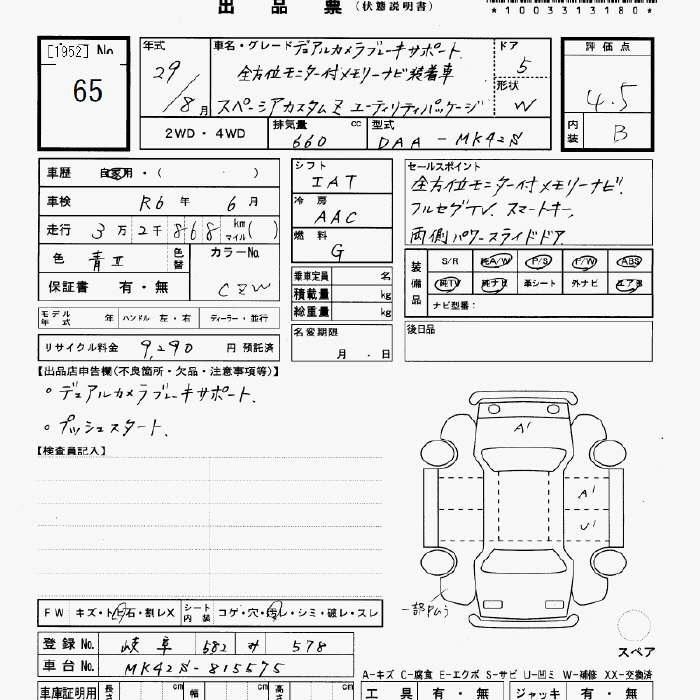 出品票 (状態説明書)
*1003313180*
[1952] No 65
年式 29/8月
車名・グレード デュアルカメラブレーキサポート
全方位モニター付メモリーナビ装着車
スペーシアカスタムZ ユーティリティパッケージ
ドア 5
形状 W
評価点 4.5
内装 B
2WD・4WD
排気量 660 cc
型式 DAA-MK42S
車歴 自家用・( )
車検 R6年 6月
走行 3万2千868 km マイル( )
色 青II
色替
カラーNo. CZW
保証書 有・無
シフト IAT
冷房 AAC
燃料 G
乗車定員 名
積載量 kg
総重量 kg
セールスポイント
全方位モニター付メモリーナビ.
フルセグTV. スマートキー.
両側パワースライドドア.
装備品
S/R 純A/W P/S P/W ABS
純TV 純ナビ 革シート 外ナビ エアB
ナビ型番:
モデル年式 年
ハンドル 左・右
ディーラー・並行
名変期限 月・日
後日品
リサイクル料金 9,290 円 預託済
【出品店申告欄(不良箇所・欠品・注意事項等)】
。デュアルカメラブレーキサポート.
。プッシュスタート.
【検査員記入】
A'
A'
U'
一部PMう
FW キズ・トビ石・割レX
シート内装 コゲ・穴・汚レ・シミ・破レ・スレ
登録No. 岐阜 582 み 578
車台No. MK42S-815575
スペア
A-キズ C-腐食 E-エクボ S-サビ U-凹ミ W-補修 XX-交換済
車庫証明用 長 cm 幅 cm 高さ cm
工具 有・無
ジャッキ 有・無